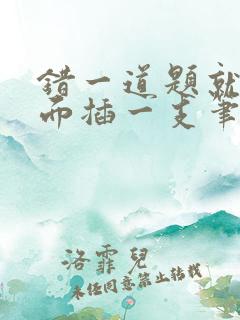 错一道题就
而插一支笔
洛霏儿
未经同意禁止转载